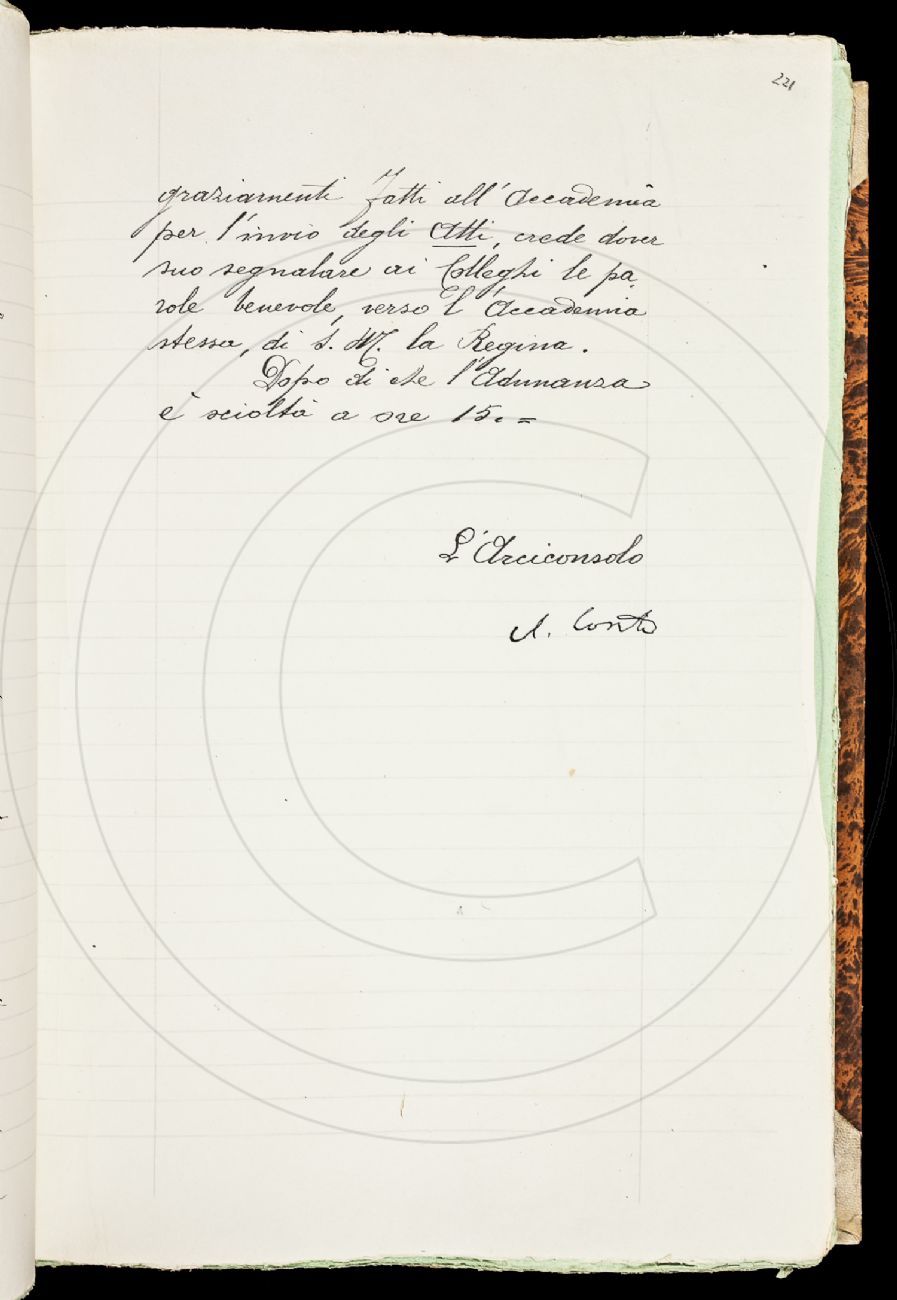 221
graziamenti fatti all'Accademia
per l'invio degli Atti, crede dover
suo segnalare ai Colleghi le pa-
role benevole, verso l'Accademia
stessa, di S. M. la Regina.
Dopo di che l'Adunanza
è sciolta a ore 15. =
L'Arciconsolo
A. Conti